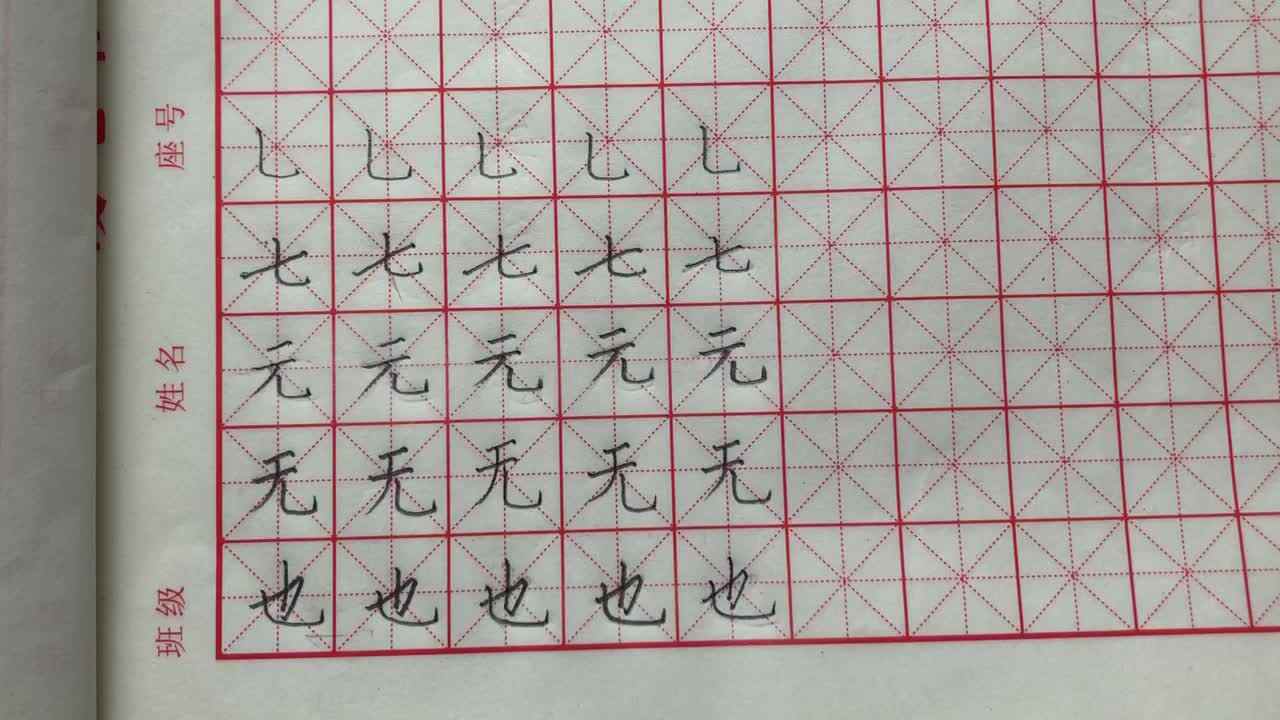 座号
姓名
班级
乚乚乚乚乚
七七七七七
元元元元元
无无无无无
也也也也也